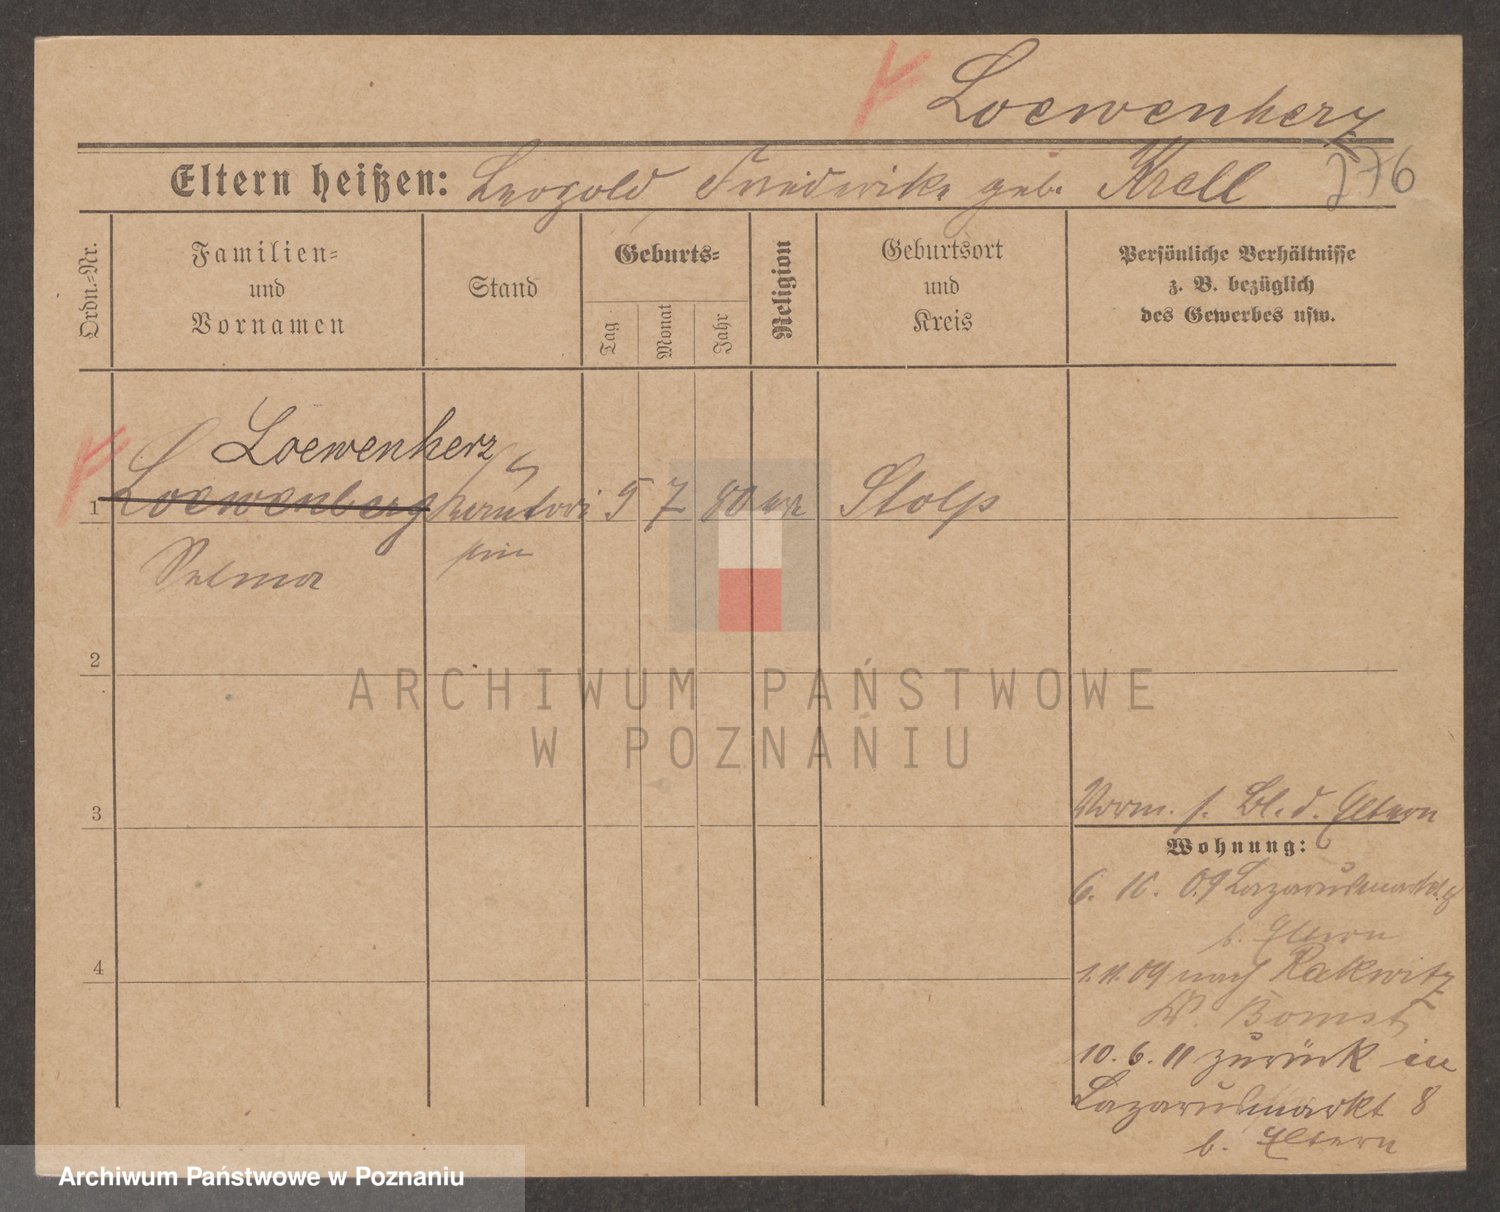 Loewenherz
276
Eltern heißen: Leopold, Friederike geb. Krell
Ordn.=Nr.
Familien=
und
Vornamen
Stand
Geburts=
Tag
Monat
Jahr
Religion
Geburtsort
und
Kreis
Persönliche Verhältnisse
z. B. bezüglich
des Gewerbes usw.
Loewenherz
1 Loewenberg 5 7 80 Stolp
Selma
2
3
Vorm. s. Bl. d. Eltern
Wohnung:
6. 09 Lazarusmarkt
b. Eltern
4
1.11.09 nach Rakwitz
Bomst
10.6.11 zurück in
Lazarusmarkt 8
b. Eltern
ARCHIWUM PAŃSTWOWE
W POZNANIU
Archiwum Państwowe w Poznaniu